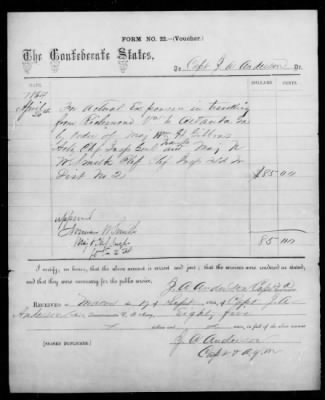 FORM NO. 22.—(Voucher.)
The Confederate States,
To Capt J. A. Anderson Dr.
DOLLARS CENTS
1864
April
For Actual Expenses in traveling
from Richmond Va to Atlanta Ga
by order of Maj Wm H Gibbons
and Maj N
W Smith Chf Insp Fld Tr
Dist No 2
$85 00
approved
Norman W Smith
Maj & Chf Insp
85 00
I certify, on honor, that the above account is correct and just; that the services were rendered as stated,
and that they were necessary for the public service.
J. A. Anderson Capt
RECEIVED at Macon Sept Capt J. A.
Anderson C. S. Army, Eighty five
dollars and cents, in full of the above account.
[SIGNED DUPLICATES.]
J. A. Anderson
Capt & A.Q.M